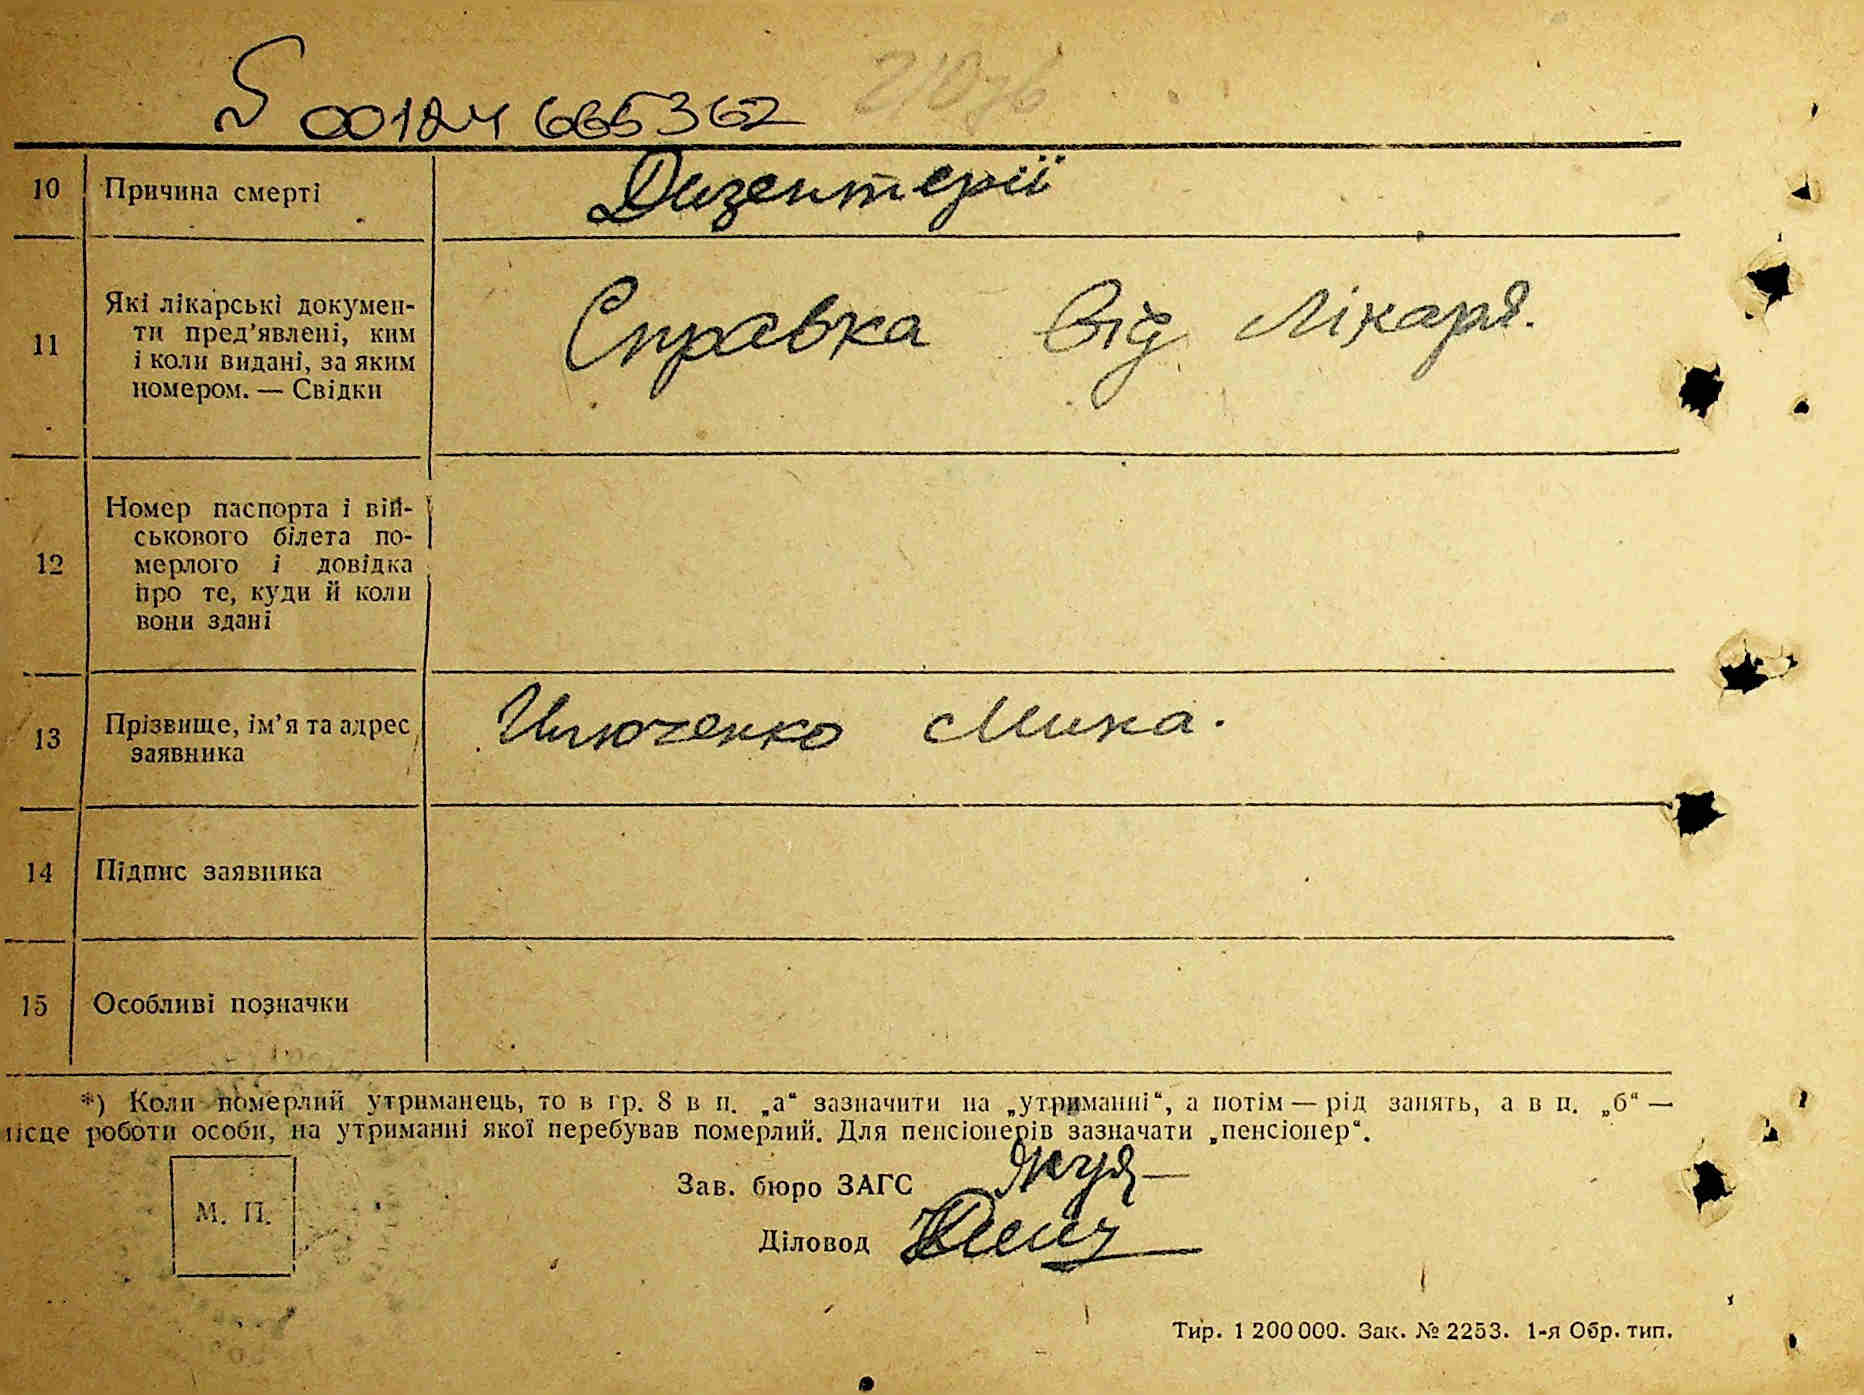 00124 665362
10 Причина смерті Дизентерії
11 Які лікарські докумен-
ти пред’явлені, ким
і коли видані, за яким
номером. — Свідки
Справка від Лікаря.
12 Номер паспорта і вій-
ськового білета по-
мерлого і довідка
про те, куди й коли
вони здані
13 Прізвище, ім’я та адрес
заявника
14 Підпис заявника
15 Особливі позначки
*) Коли померлий утриманець, то в гр. 8 в п. „а“ зазначити на „утриманні“, а потім — рід занять, а в п. „б“ —
місце роботи особи, на утриманні якої перебував померлий. Для пенсіонерів зазначати „пенсіонер“.
Зав. бюро ЗАГС
М. П.
Діловод
Тир. 1 200 000. Зак. № 2253. 1-я Обр. тип.